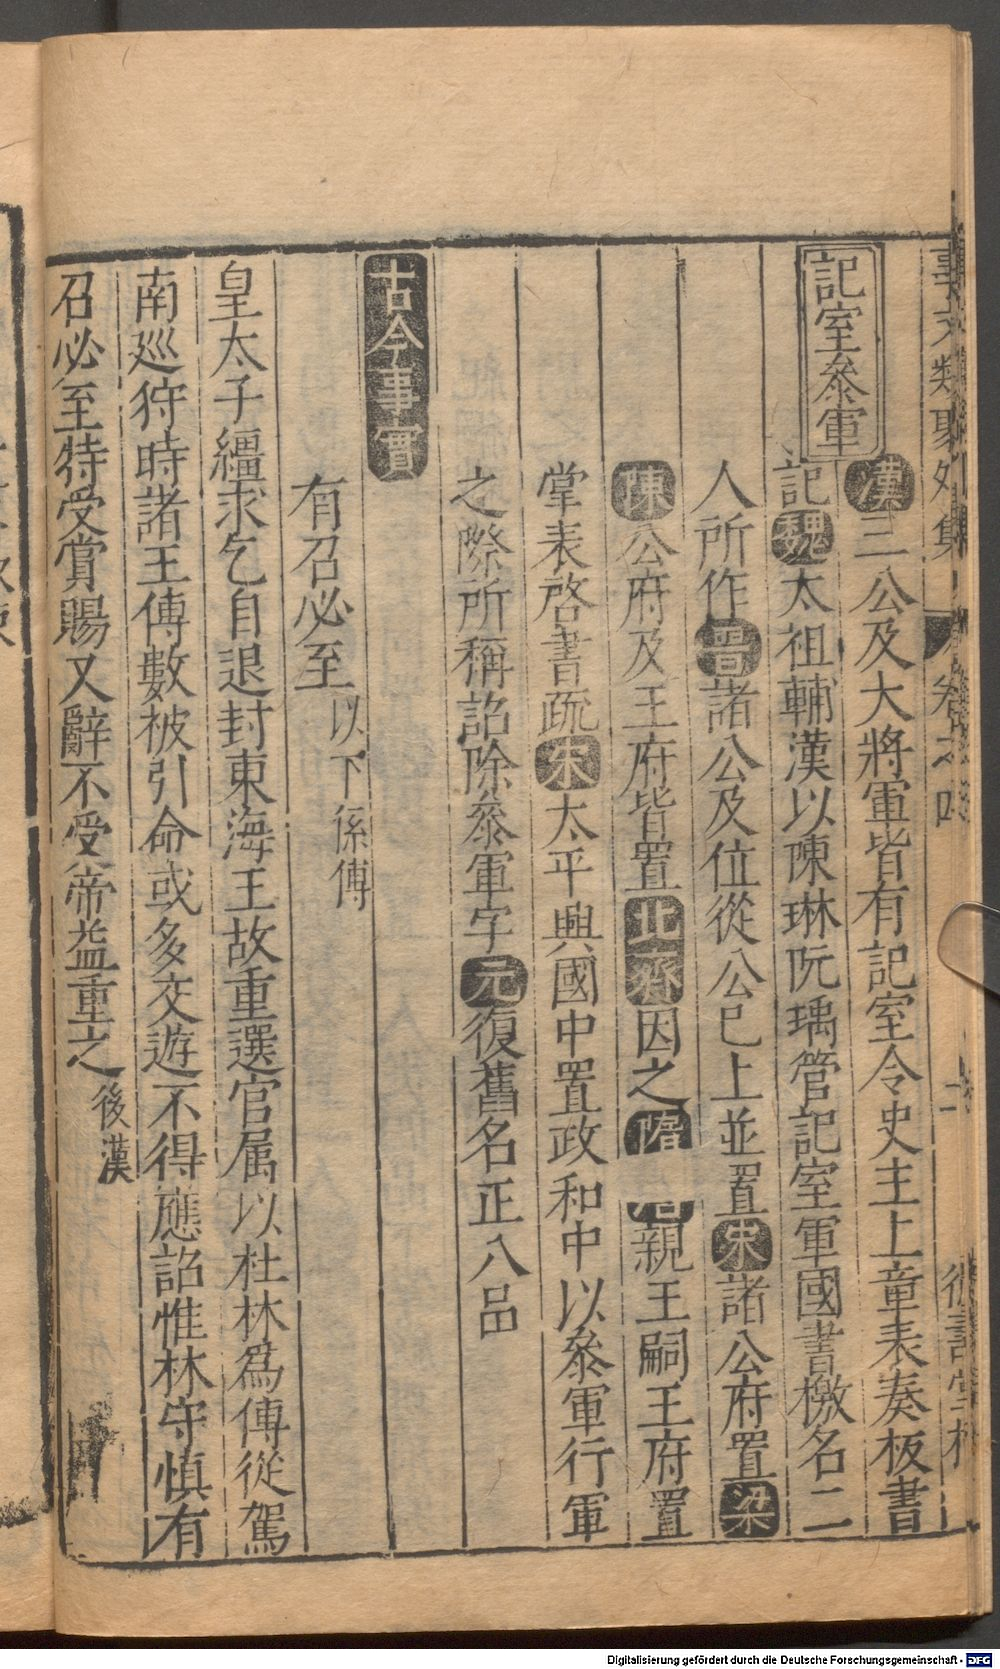 事文類聚外集 卷之四 二
記室參軍
漢三公及大將軍皆有記室令史主上章表奏板書
記魏太祖輔漢以陳琳阮瑀管記室軍國書檄名二
人所作晋諸公及位從公已上並置宋諸公府置梁
陳公府及王府皆置北齊因之隋 親王嗣王府置
掌表啓書疏宋太平興國中置政和中以參軍行軍
之際所稱詔除參軍字元復舊名正八品
古今事實
有召必至以下係傅
皇太子繮求乞自退封東海王故重選官属以杜林爲傅從駕
南廵狩時諸王傅數被引命或多交遊不得應詔惟林守慎有
召必至特受賞賜又辭不受帝益重之後漢
Digitalisierung gefördert durch die Deutsche Forschungsgemeinschaft - DFG